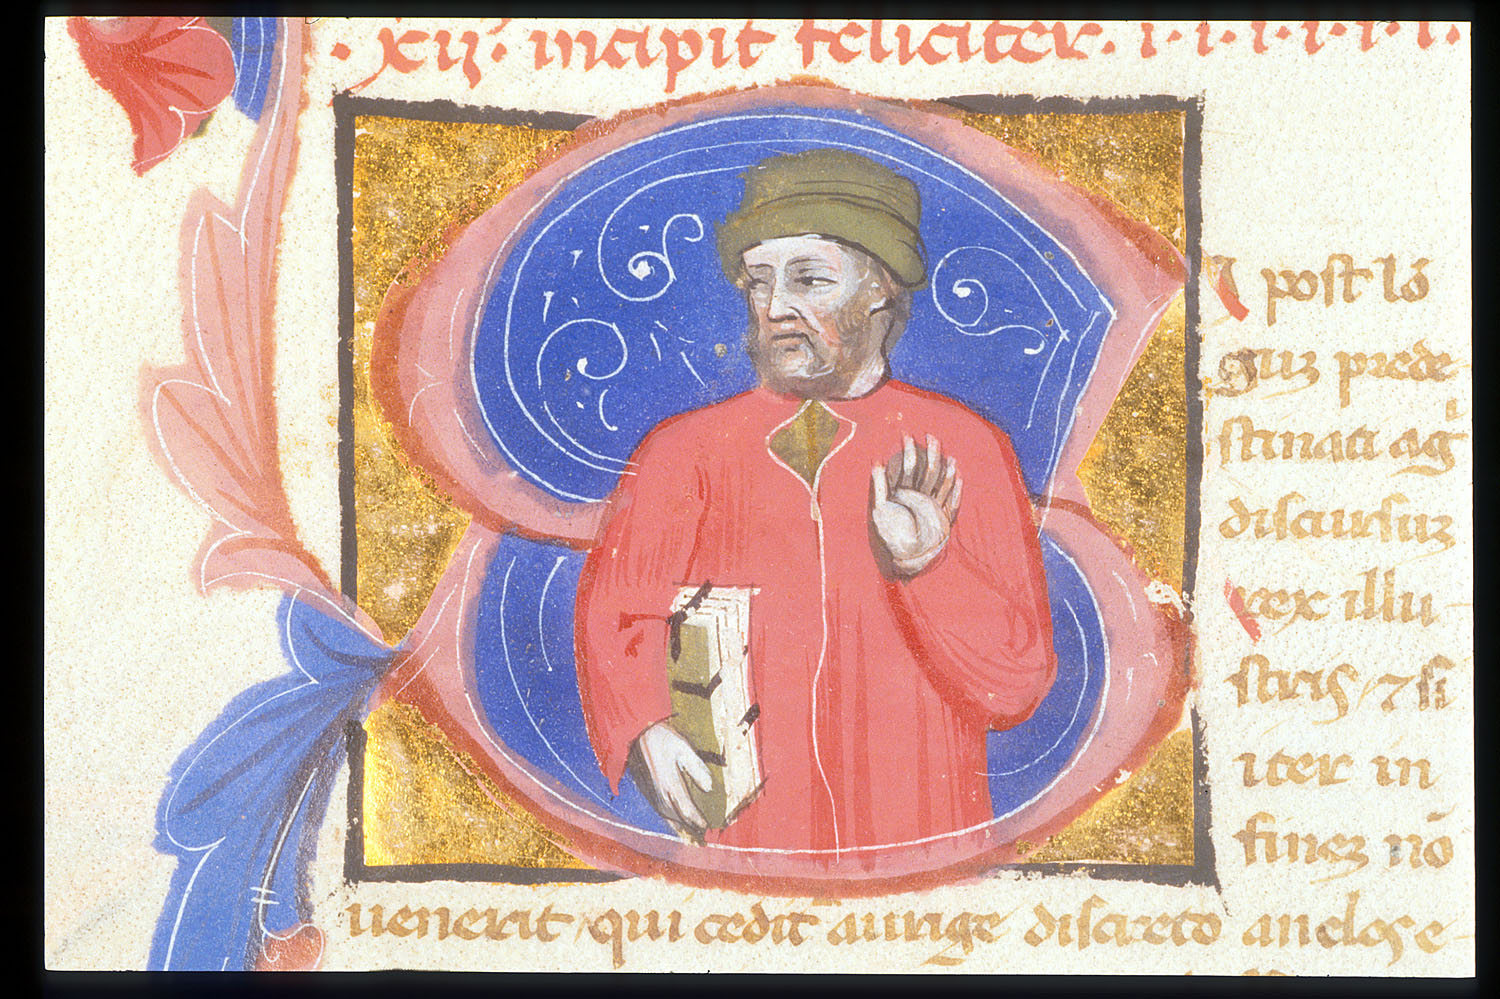 . xij. incipit feliciter. i. i. i. i. i. i.
post lõ
guz prede
stinati ag̃
discursuz
rex illu
stris, ⁊ si
iter in
finez nõ
uenerit qui cedit aurige discreto anelos e